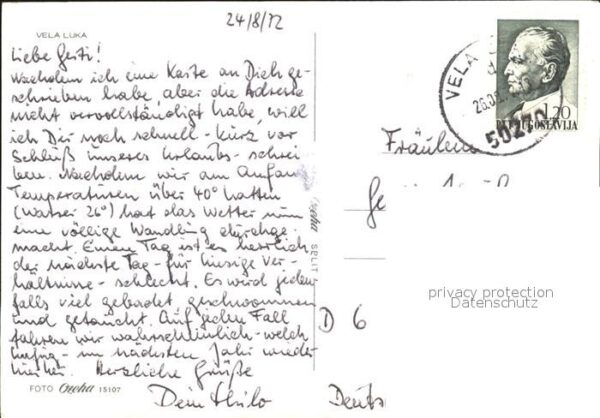 24/8/72
VELA LUKA
Liebe Gerti!
Nachdem ich eine Karte an Dich ge-
schrieben habe, aber die Adresse
nicht vervollständigt habe, will
ich Dir noch schnell - kurz vor
Schluß unseres Urlaubs - schrei
ben. Nachdem wir am Anfan
Temperaturen über 40° hatten
(Wasser 26°) hat das Wetter nun
eine völlige Wandlung durchge-
macht. Einen Tag ist es herrlich
der nächste Tag - für hiesige Ver-
hältnisse - schlecht. Es wird jeden
falls viel gebadet geschwommen
und getaucht. Auf jeden Fall
fahren wir wahrscheinlich - welch
- im nächsten Jahr wieder
hierher. Herzliche Grüße
Dein Thilo
FOTO Oneha 15107
Oneha SPLIT
VELA
50270
1.20
JUGOSLAVIJA
Fräulein
Ge
D 6
Deuts
privacy protection
Datenschutz